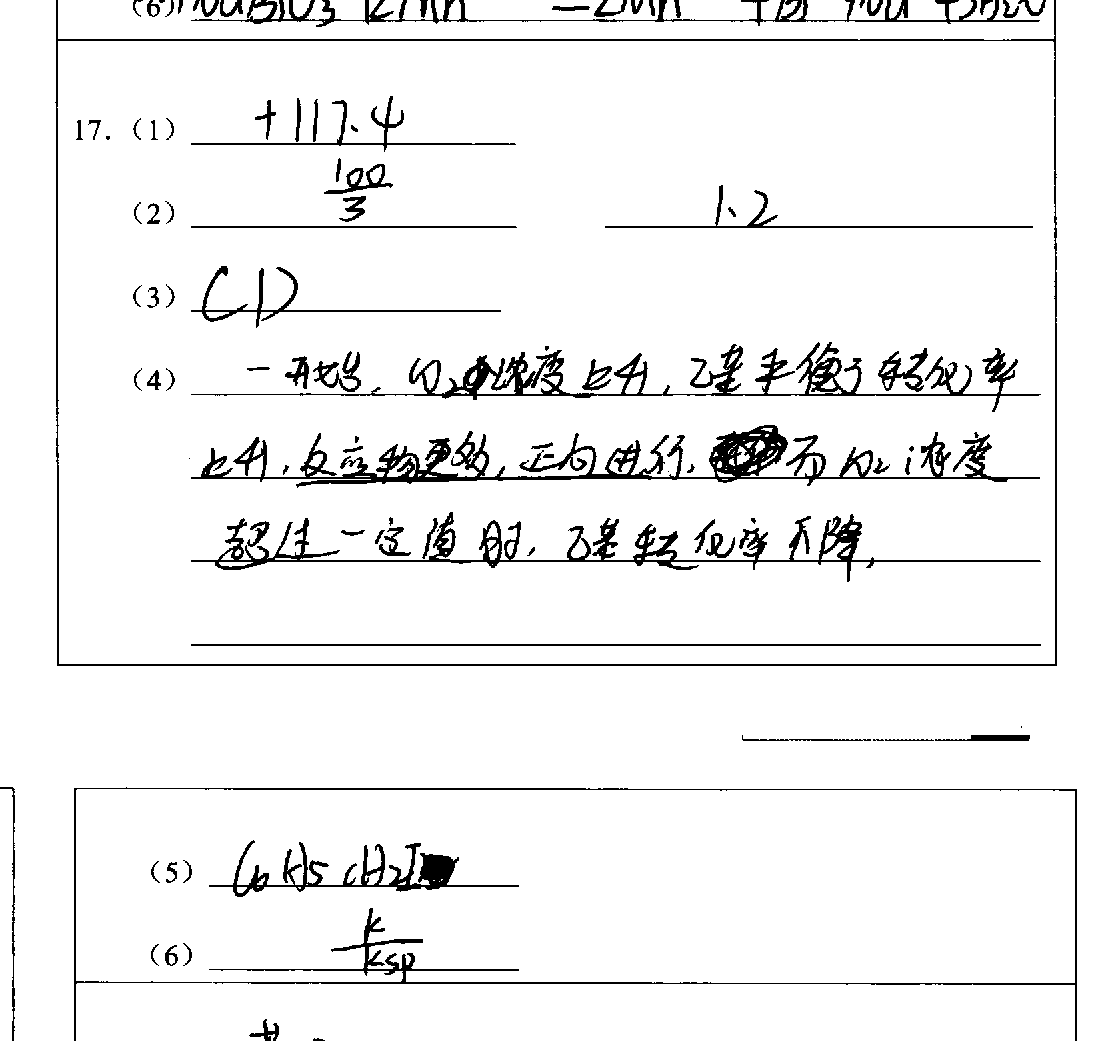 (6) NaBiO₃ =2Mn
17.（1） +117.4
（2） 100/3 1.2
（3） CD
（4） 一开始, 浓度上升, 乙基平衡 转化率
上升, 反应物更多, 正向进行, 而 浓度
超过一定值时, 乙基转化率下降,
（5） C6H5CH2I
（6） k/ksp